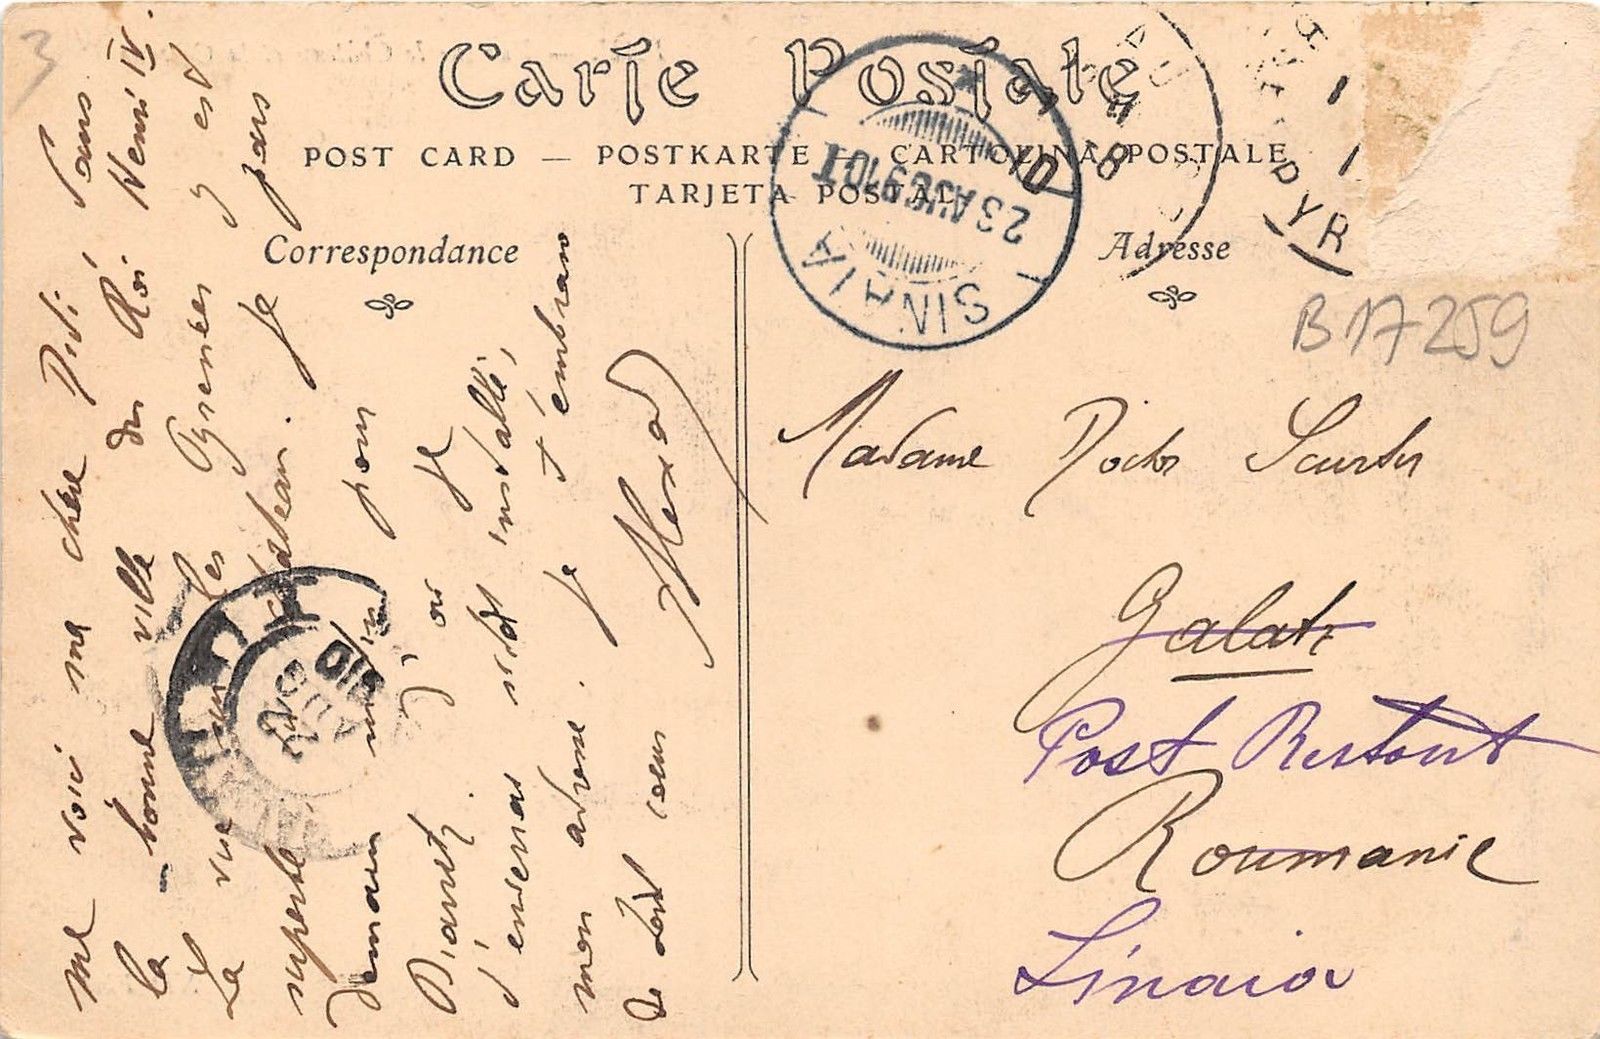 3
Carte Postale
POST CARD — POSTKARTE — CARTOLINA POSTALE
TARJETA POSTAL
Correspondance
Adresse
SINAIA
23 AUG 910
PYR
B17259
me voici ma chère Didi, dans
la bonne ville du Roi Henri IV.
La vue sur les Pyrénées y est
superbe, château. Je pars
demain matin pour
Biarritz, où je
t'enverrai sitôt installé,
mon adresse. Je t'embrasse
de tout coeur
Madame Doctor
Galatz
Post Restant
Roumanie
Sinaia